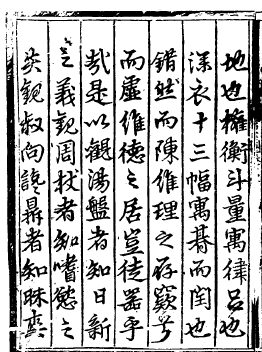 地也權衡斗量寓律呂也
深衣十三幅寓朞而閏也
錯然而陳維理之存窾兮
而虛維德之居豈徒器乎
哉是以觀湯盤者知日新
之義觀周杖者知嗜慾之
英觀叔向讒鼎者知昧爽